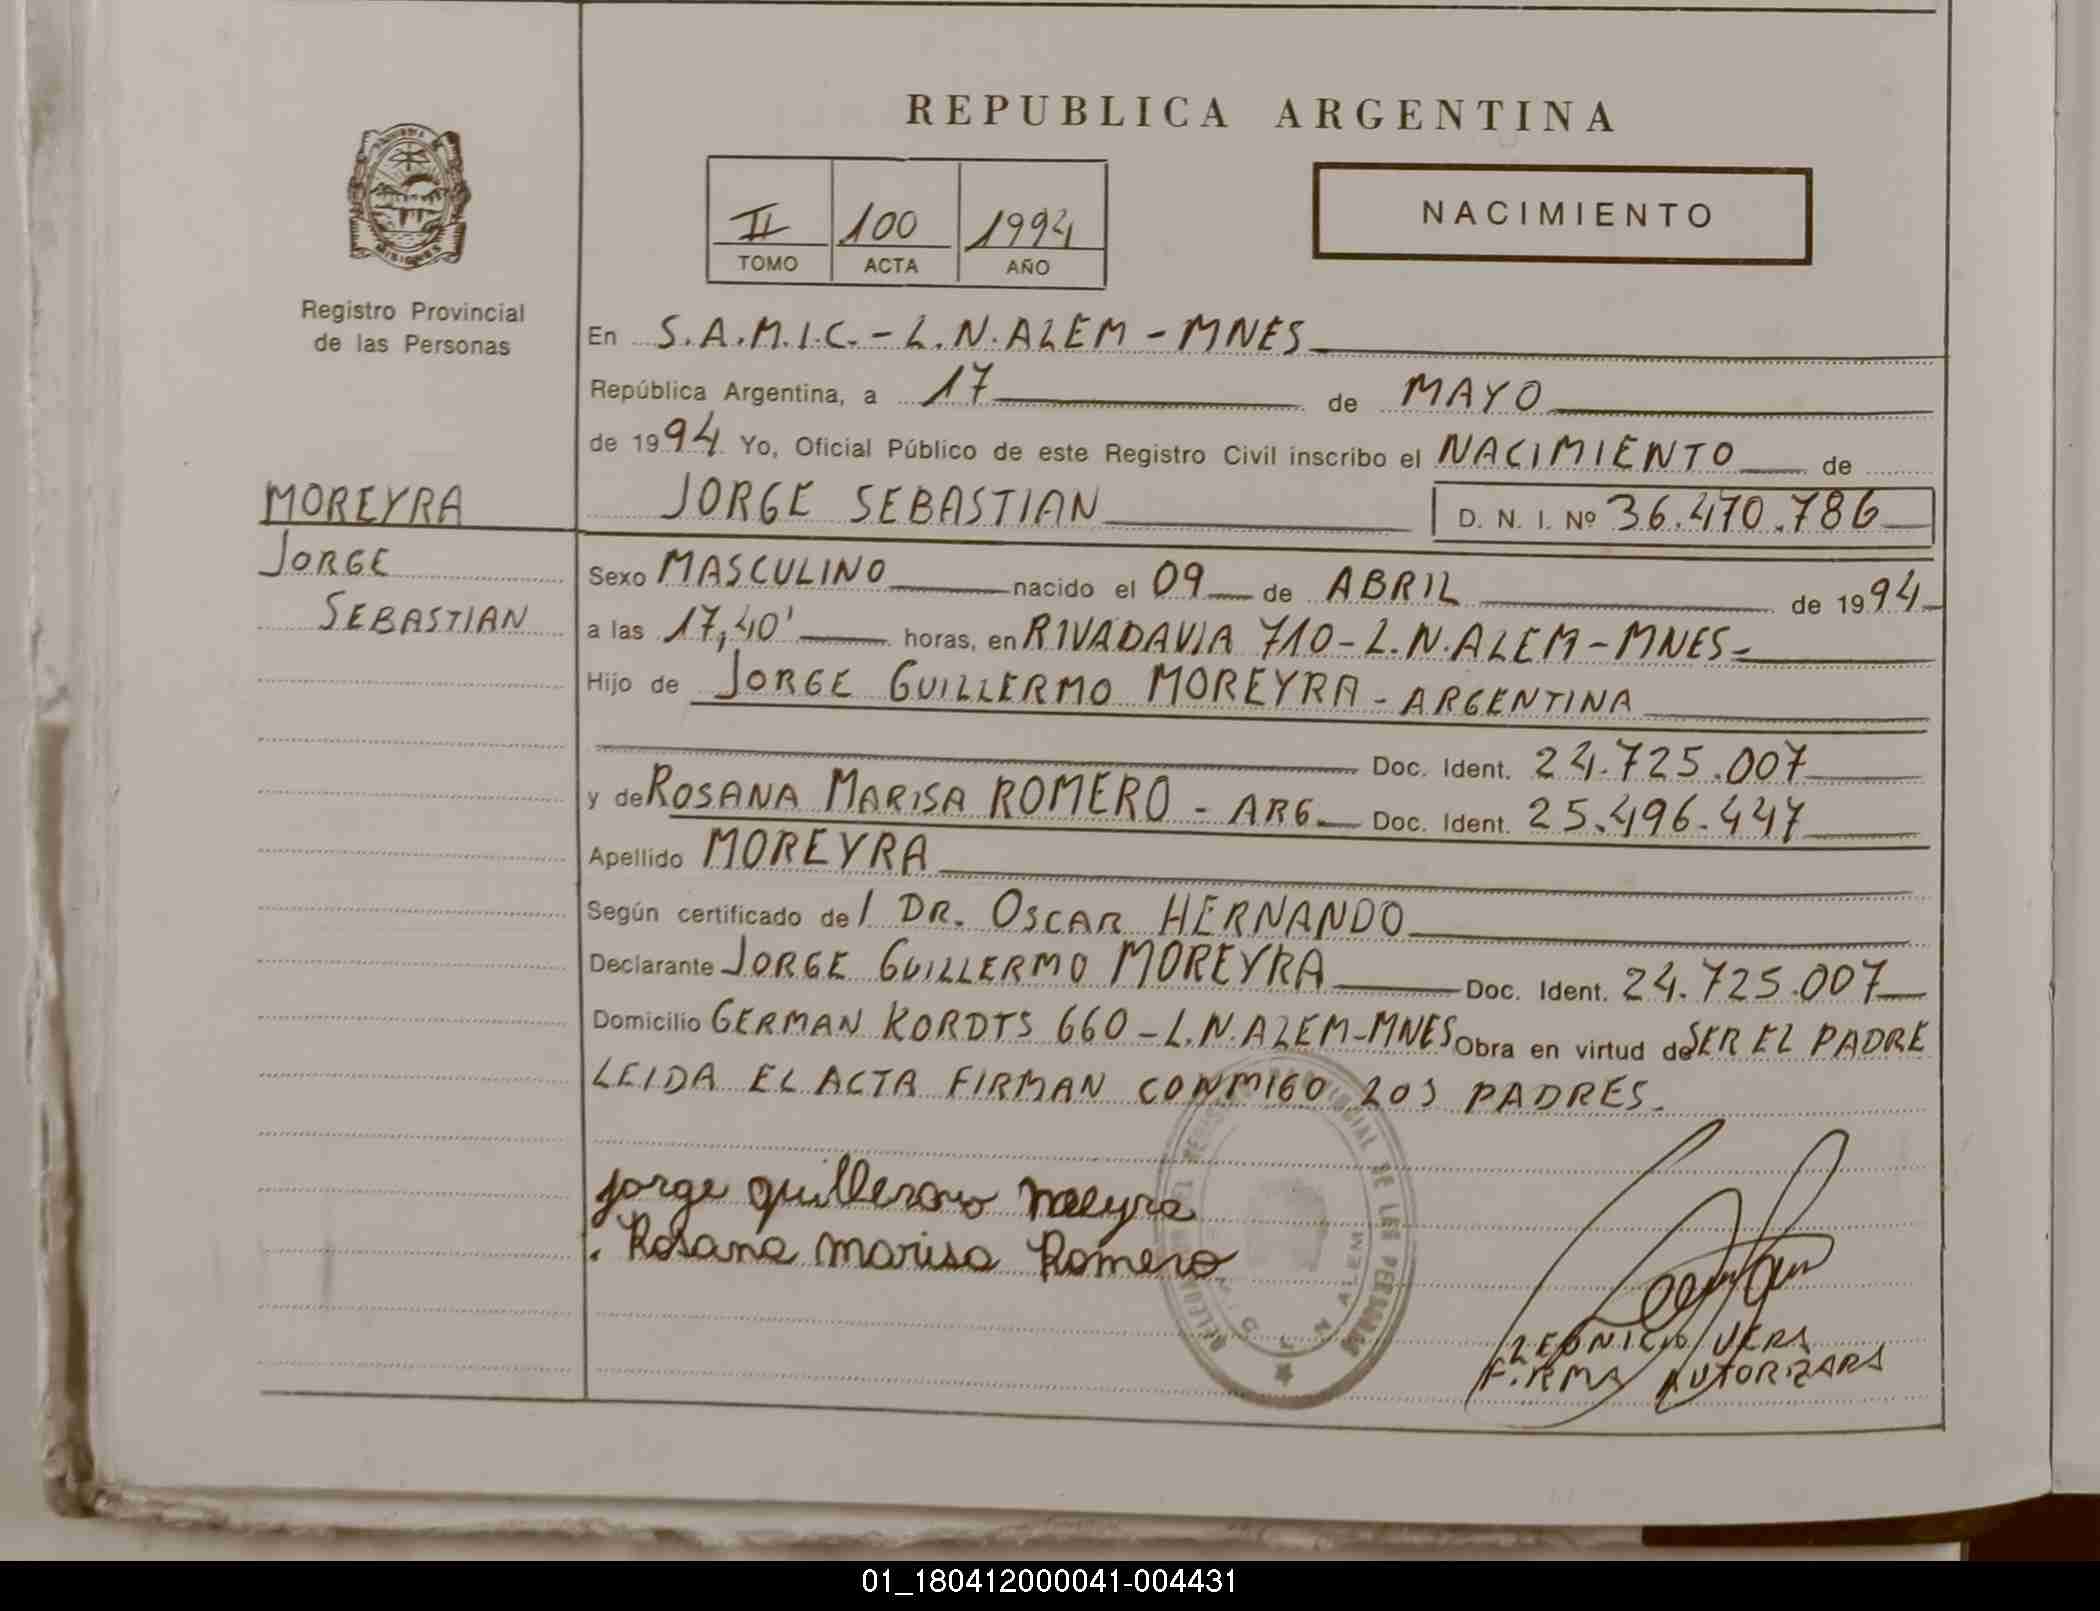 REPUBLICA ARGENTINA
II 100 1994
TOMO ACTA AÑO
NACIMIENTO
MISIONES
Registro Provincial
de las Personas
MOREYRA
JORGE
SEBASTIAN
En S.A.M.I.C. - L.N.ALEM - MNES
República Argentina, a 17 de MAYO
de 1994 Yo, Oficial Público de este Registro Civil inscribo el NACIMIENTO de
JORGE SEBASTIAN D. N. I. Nº 36.470.786
Sexo MASCULINO nacido el 09 de ABRIL de 1994
a las 17,40' horas, en RIVADAVIA 710 - L.N.ALEM - MNES -
Hijo de JORGE GUILLERMO MOREYRA - ARGENTINA
Doc. Ident. 24.725.007
y de ROSANA MARISA ROMERO - ARG. Doc. Ident. 25.496.447
Apellido MOREYRA
Según certificado del DR. OSCAR HERNANDO
Declarante JORGE GUILLERMO MOREYRA Doc. Ident. 24.725.007
Domicilio GERMAN KORDTS 660 - L.N.ALEM - MNES Obra en virtud de SER EL PADRE
LEIDA EL ACTA FIRMAN CONMIGO LOS PADRES.
Jorge guillermo Moreyra
Rosana marisa Romero
REGISTRO PROVINCIAL DE LAS PERSONAS
L. N. ALEM
LEONICIO VERA
FIRMA AUTORIZADA
01_180412000041-004431